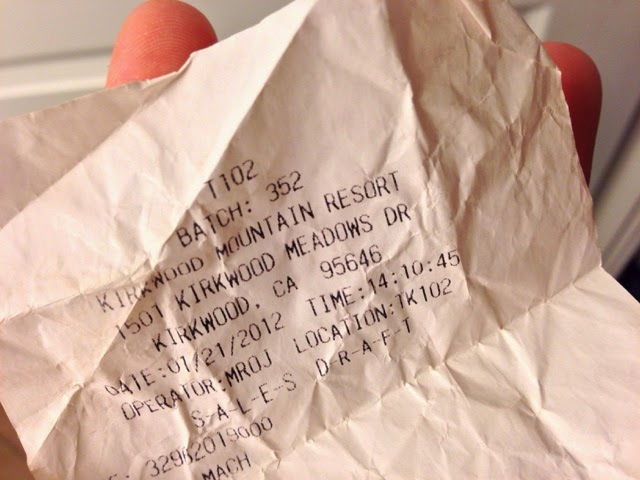 T102
BATCH: 352
KIRKWOOD MOUNTAIN RESORT
1501 KIRKWOOD MEADOWS DR
KIRKWOOD, CA 95646
DATE:01/21/2012 TIME:14:10:45
OPERATOR:MROJ LOCATION:TK102
S-A-L-E-S D-R-A-F-T
32962019000
MACH